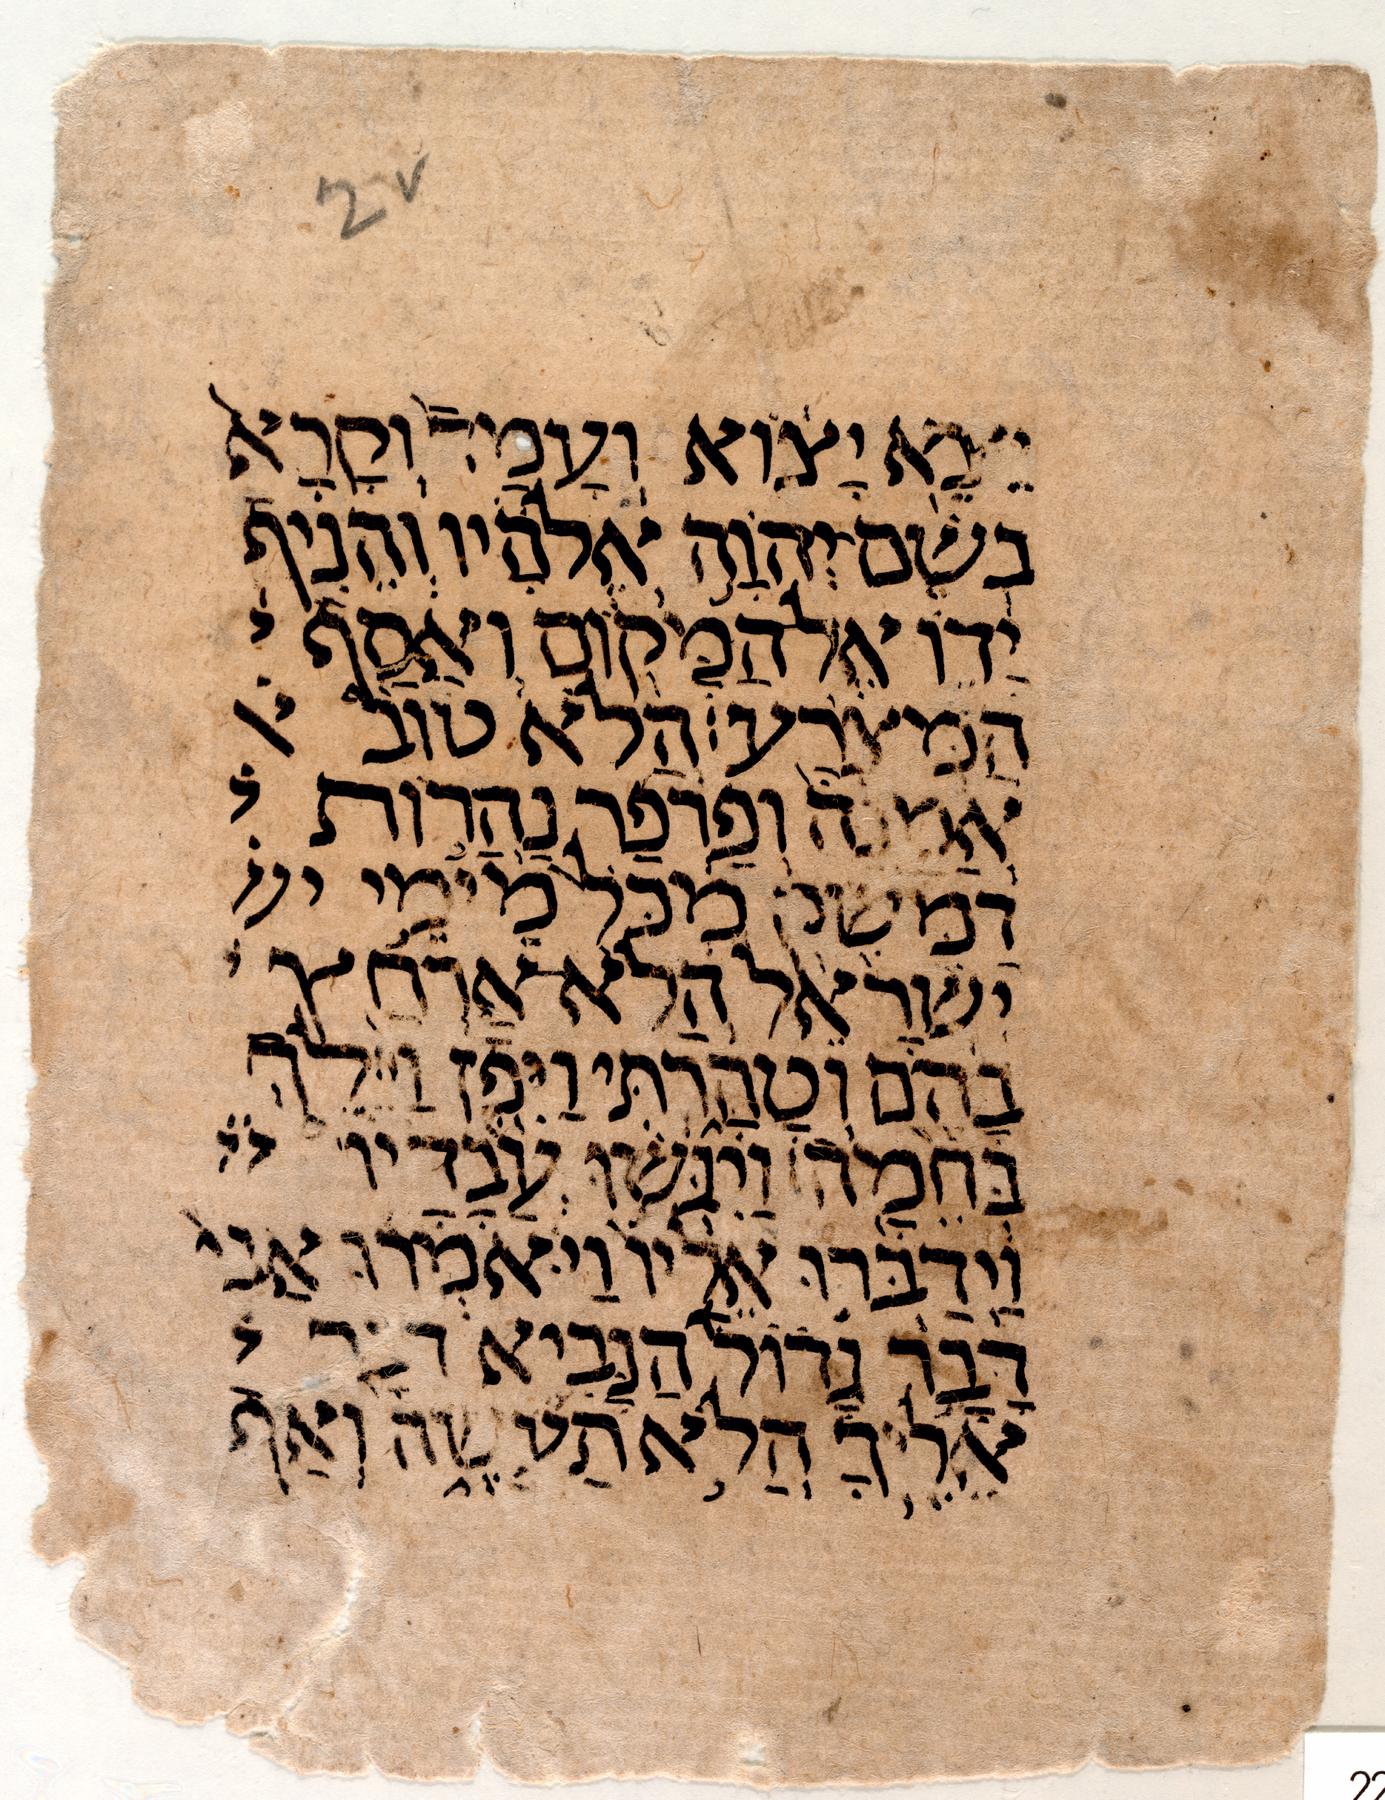 2v
יֵצֵא יָצוֹא וְעָמַד וְקָרָא
בְּשֵׁם יְהוָֹה אֱלֹהָיו וְהֵנִיף
יָדוֹ אֶל הַמָּקוֹם וְאָסַף
הַמְּצֹרָע׃ הֲלֹא טוֹב א
אֲמָנָה וּפַרְפַּר נַהֲרוֹת
דַּמֶּשֶׂק מִכֹּל מֵימֵי יש
יִשְׂרָאֵל הֲלֹא אֶרְחַץ
בָּהֶם וְטָהָרְתִּי וַיִּפֶן וַיֵּלֶךְ
בְּחֵמָה׃ וַיִּגְּשׁוּ עֲבָדָיו
וַיְדַבְּרוּ אֵלָיו וַיֹּאמְרוּ אָבִי
דָּבָר גָּדוֹל הַנָּבִיא דִּבֶּר
אֵלֶיךָ הֲלֹא תַעֲשֶׂה וְאַף
22